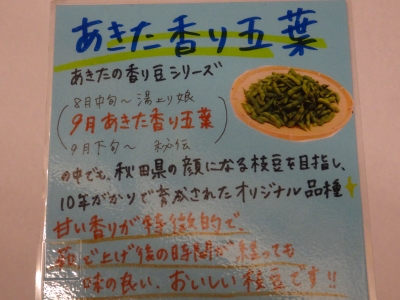 あきた香り五葉
あきたの香り豆シリーズ
8月中旬〜湯上り娘
9月あきた香り五葉
9月下旬〜 秘伝
の中でも、秋田県の顔になる枝豆を目指し、
10年がかりで育成されたオリジナル品種
甘い香りが特徴的で、
茹で上げ後の時間が経っても
味の良い、おいしい枝豆です!!